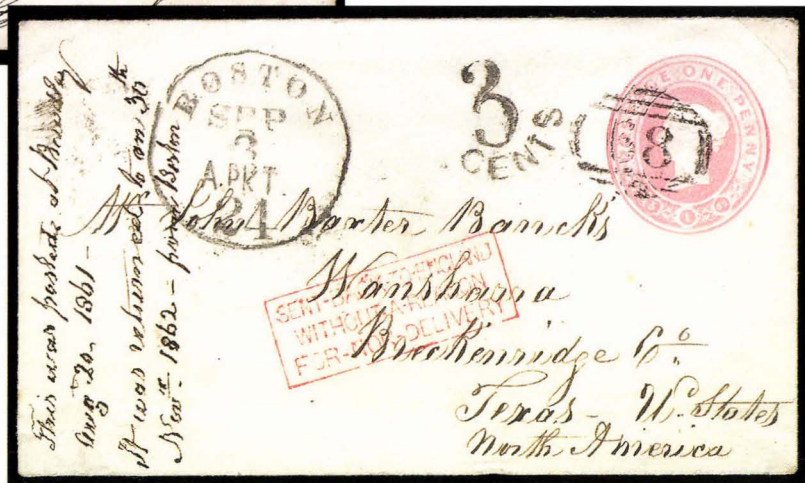 This was posted at
Aug 20. 1861 -
It was returned to on 30th
Novr 1862 - from Boston
BOSTON
SEP
3
A.PKT
24
3
CENTS
POSTAGE ONE PENNY
8
Mr John Baxter Bancks
Wansharra
Breckenridge Co.
Texas - U. States
North America
SENT-BACK-TO-ENGLAND
WITHOUT-A-REASON
FOR-NON-DELIVERY